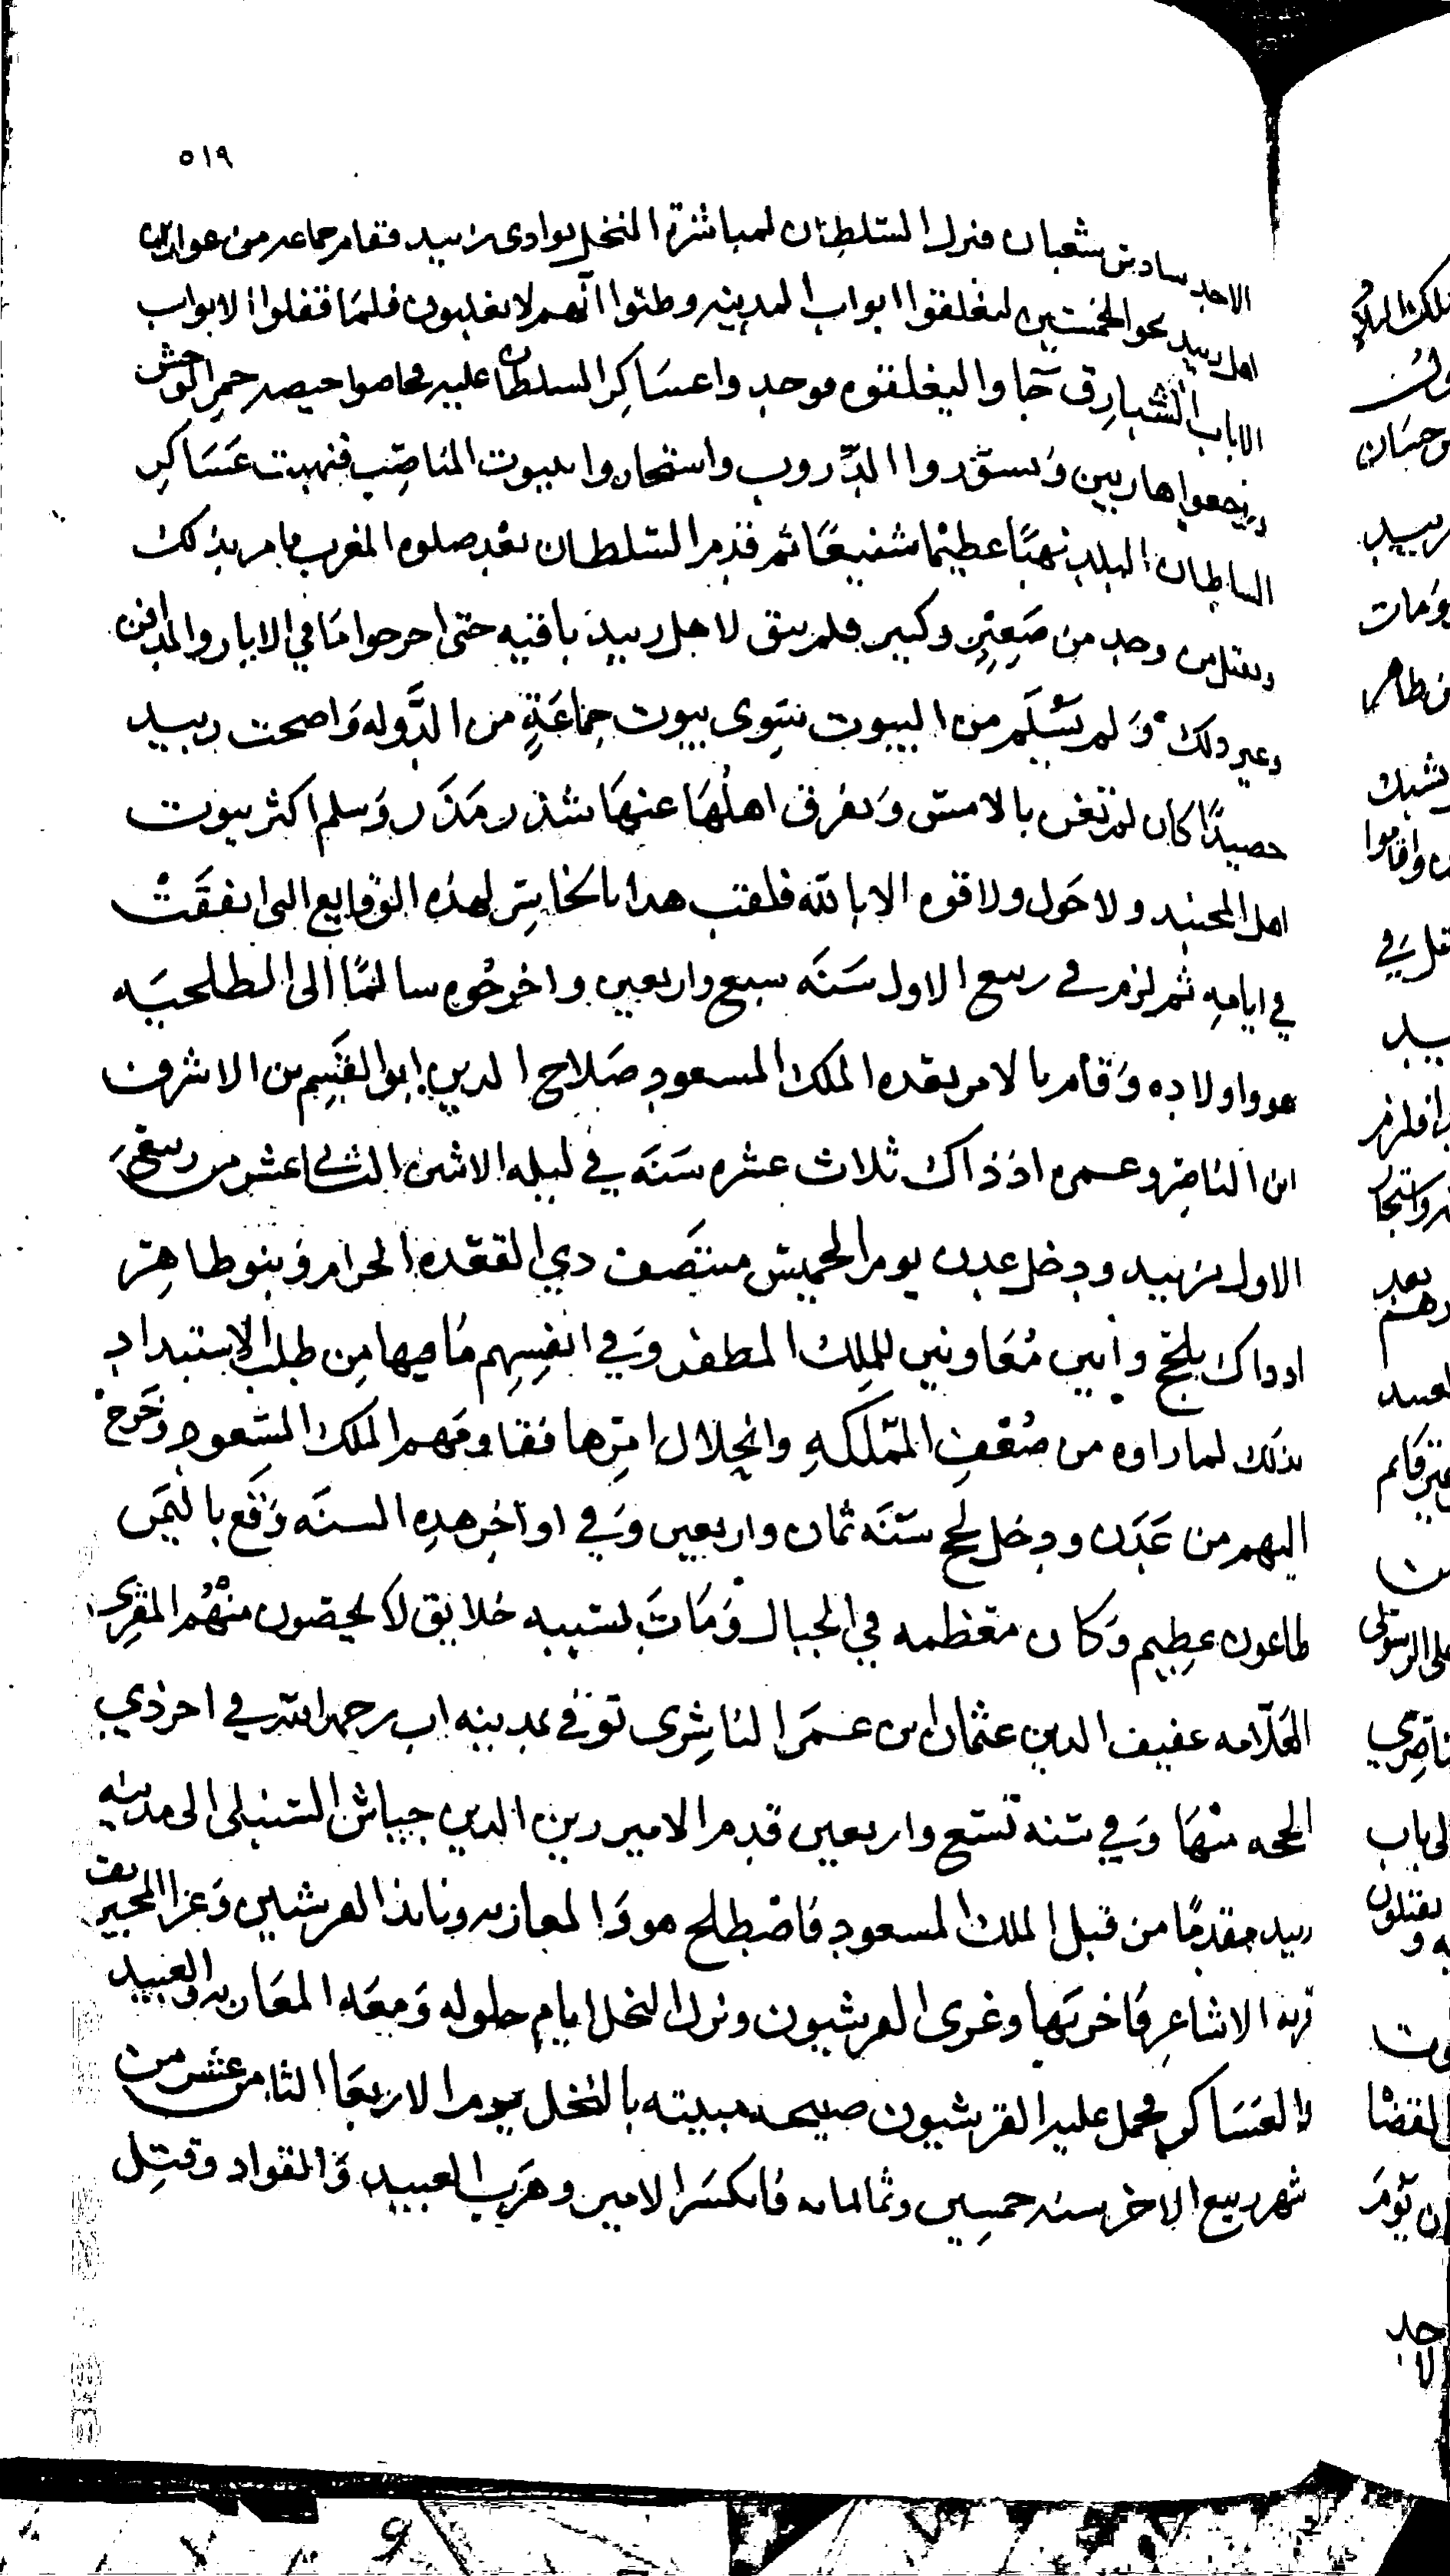 ٥١٩
الاحد سادس شعبان فنزل السلطان لمباشرة النخل بوادى زبيد فقام جماعه من عوارين
اهل زبيد نحو الخمسين ليغلقوا ابواب المدينه وظنوا انهم لا يغلبون فلما قفلوا الابواب
الا باب الشبارق جاوا ليغلقوه فوجدوا عساكر السلطان عليه فحاصوا حيصه حمر الوحش
ورجعوا هاربين وتسوروا الدروب واستجاروا ببيوت المناصب فنهبت عساكر
السلطان البلد نهبًا عظيما شنيعًا ثم قدم السلطان بعد صلوه المغرب فامر بذلك
وبقتل من وجد من صغير وكبير فلم يبق لاهل زبيد باقيه حتى اخرجوا ما في الابار والمدافن
وغير ذلك وَلم يَسْلَم من البيوت سوى بيوت جماعَةٍ من الدَّوله وَاصبحت زبيد
حصيدًا كان لم تغن بالامس وَتفرق اهلُهَا عنهَا شذر مذَر وَسلم اكثر بيوت
اهل المجنبد ولا حَول ولا قوه الا بالله فلقب هذا بالخاسر لهذه الوقايع التى اتفقَتْ
في ايامِه ثم لزم في ربيع الاول سَنَه سبع واربعين واخرجُوه سالمًا الى الطلحيَه
هو واولاده وَقام بالامر بعده الملك المسعود صَلاح الدين ابو القسِم بن الاشرف
ابن الناصِر وعمره اذ ذاك ثلاث عشره سَنَه في ليله الاثنين الثاني عشر من ربيع
الاول بزبيد ودخل عدن يوم الخميس منتصَف ذي القعده الحرام وَبنو طاهِر
اذ ذاك بلحج وابين مُعَاونين للملِك المظفر وَفي انفسِهم مَا فيها مِن طلب الاستبداد
بذلك لما راوه من ضُعْفِ المَملَكهِ وانحلال امرِها فقاومَهم الملك المسعود وَخَرجَ
اليهم من عَدَن ودخل لحج سَنَه ثمان واربعين وَفي اوآخِر هذه السنَه وَقَع باليَمَن
طاعون عظِيم وَكان معظمه في الجبال وَمَاتَ بسَببه خلايق لا يُحصَون منهُم المقرِى
العَلّامه عفيف الدين عثمان بن عمَر الناشِرى توفى بمدينه اب رحمه الله في اخر ذي
الحجه منهَا وَفي سنه تسع واربعين قدم الامير زين الدين جياش السنبلى الى مدينه
زبيد مقدمًا من قبل الملك المسعود فاصْطلح هو وَالمعازبه ونابذ القرشيين وَغزا المجيريف
قريه الاشاعِر فَاخربَها وغزى القرشيون ونزل النخل ايام حلوله وَمعَه المعَازبه والعبيد
والعَسَاكر فحمل عليه القرشيون صبيحه مبيته بالنخل يوم الاربعَا الثامن عشر من
شهر ربيع الاخر سنه خمسِين وثمانمايه فَانكسَر الامير وهَرب العبيد وَالقواد وقتِل